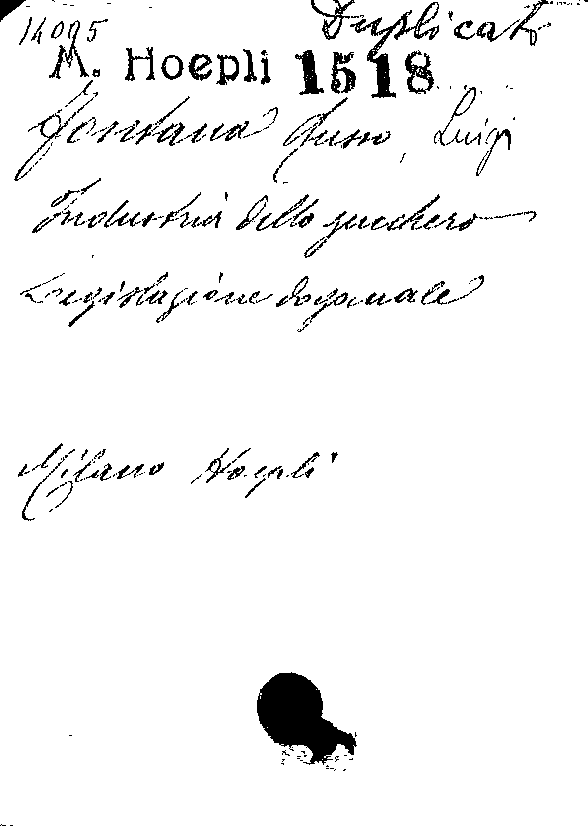 14095 Duplicato
M. Hoepli 1518
Fontana Russo, Luigi
Industria dello zucchero
Legislazione doganale
Milano Hoepli